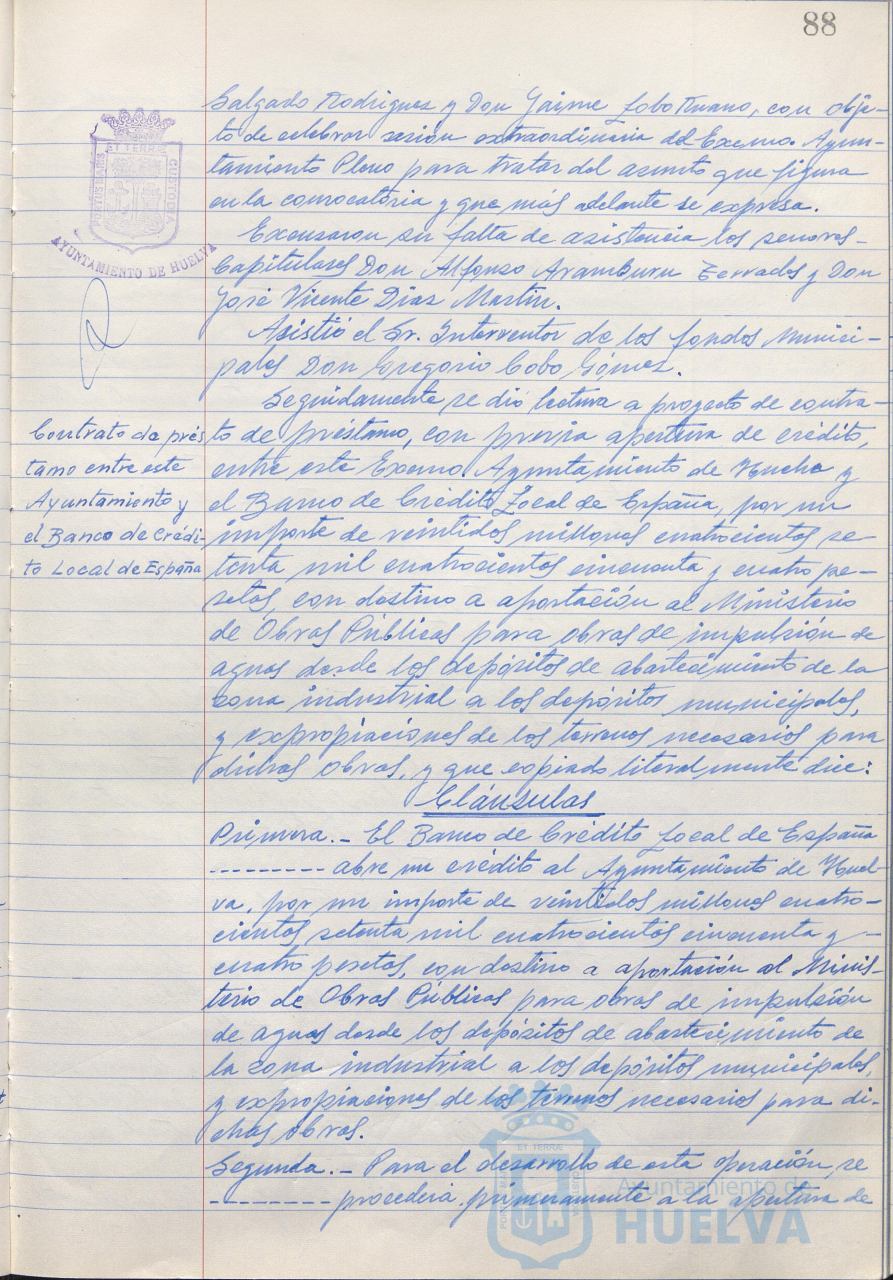 88
Salgado Rodriguez y Don Jaime Lobo Ruano, con obje-
to de celebrar sesión extraordinaria del Excmo. Ayun-
tamiento Pleno para tratar del asunto que figura
en la convocatoria y que más adelante se expresa.
Excusaron su falta de asistencia los señores-
Capitulares Don Alfonso Aramburu Terrados y Don
José Vicente Díaz Martín.
Asistió el Sr. Interventor de los fondos Munici-
pales Don Gregorio Cobo Gómez.
Seguidamente se dió lectura a proyecto de contra-
to de préstamo, con previa apertura de crédito,
entre este Excmo. Ayuntamiento de Huelva y
el Banco de Crédito Local de España, por un
importe de veintidos millones cuatrocientos se-
tenta mil cuatrocientos cincuenta y cuatro pe-
setas, con destino a aportación al Ministerio
de Obras Públicas para obras de impulsión de
aguas desde los depósitos de abastecimiento de la
zona industrial a los depósitos municipales,
y expropiaciones de los terrenos necesarios para
dichas obras, y que copiado literalmente dice:
Cláusulas
Primera.- El Banco de Crédito Local de España
--------- abre un crédito al Ayuntamiento de Huel-
va, por un importe de veintidos millones cuatro-
cientos setenta mil cuatrocientos cincuenta y-
cuatro pesetas, con destino a aportación al Minis-
terio de Obras Públicas para obras de impulsión
de aguas desde los depósitos de abastecimiento de
la zona industrial a los depósitos municipales,
y expropiaciones de los terrenos necesarios para di-
chas obras.
Segunda.- Para el desarrollo de esta operación, se
--------- procederá, primeramente a la apertura de
Contrato de prés
tamo entre este
Ayuntamiento y
el Banco de Crédi-
to Local de España
PORTUS MARIS
ET TERRAE
CUSTODIA
AYUNTAMIENTO DE HUELVA
Ayuntamiento de
HUELVA